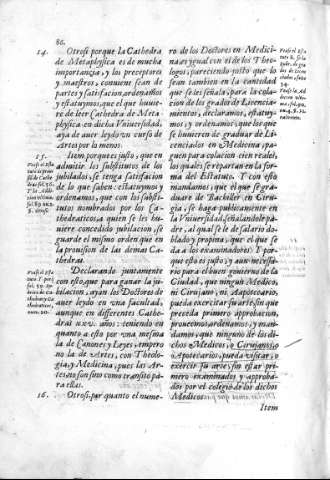 86.
14. Otrosi porque la Cathedra
de Metaphysica es de mucha
importancia, y los preceptores
y maestros, conuiene sean de
partes y satisfacion, ordenamos
y estatuymos, que el que huuie-
re de leer Cathedra de Meta-
physica en dicha Vniuersidad,
aya de auer leydo vn curso de
Artes por lo menos.
15. Item porque es justo, que en
admitir los substitutos de los
jubilados, se tenga satisfacion
de lo que saben: estatuymos y
ordenamos, que con los substi-
tutos nombrados por los Ca-
thedraticos, a quien se les huuie-
re concedido jubilacion, se
guarde el mismo orden que en
la prouision de las demas Ca-
thedras.
Declarando juntamente
con esto, que para ganar la ju-
bilacion, ayan los Doctores de
auer leydo en vna facultad,
aunque en differentes Cathe-
dras
años: teniendo en
quanto a esto por vna mesma
la de Canones y Leyes, empero
no la de Artes, con Theolo-
gia, y Medicina, pues las Ar-
tes no son sino como transito pa-
ra ellas.
16. Otrosi, por quanto el nume-
ro de los Doctores en Medici-
na es ygual con el de los Theo-
logos, pareciendo justo que lo
sean tambien en la cantidad
que se les señala, para la cola-
cion de los grados de Licencia-
mientos, declaramos, estatuy-
mos, y ordenamos: que los que
se huuieren de graduar de Li-
cenciados en Medicina, pa-
guen para colacion cien reales,
los quales se repartan en la for-
ma del Estatuto. Y con esto
mandamos, que el que se gra-
duare de Bachiller en Cirur-
gia, se haga publicamente en
la Vniuersidad, señalandole pa-
dre, al qual se le de salario do-
blado y propina, el que se
da a los examinadores. Y por-
que esto es justo, y aun necessa-
rio para el buen gouierno de la
Ciudad, que ningun Medico,
ni Cirujano, ni Apotecario,
pueda exercitar su arte sin que
preceda primero approbacion,
proueemos, ordenamos, y man-
damos, que ninguno de los di-
chos Medicos, o Cirujanos, o
Apotecarios, pueda visitar, o
exercir su arte, sin estar pri-
mero examinados y approba-
dos por el colegio de los dichos
Medicos.
Item